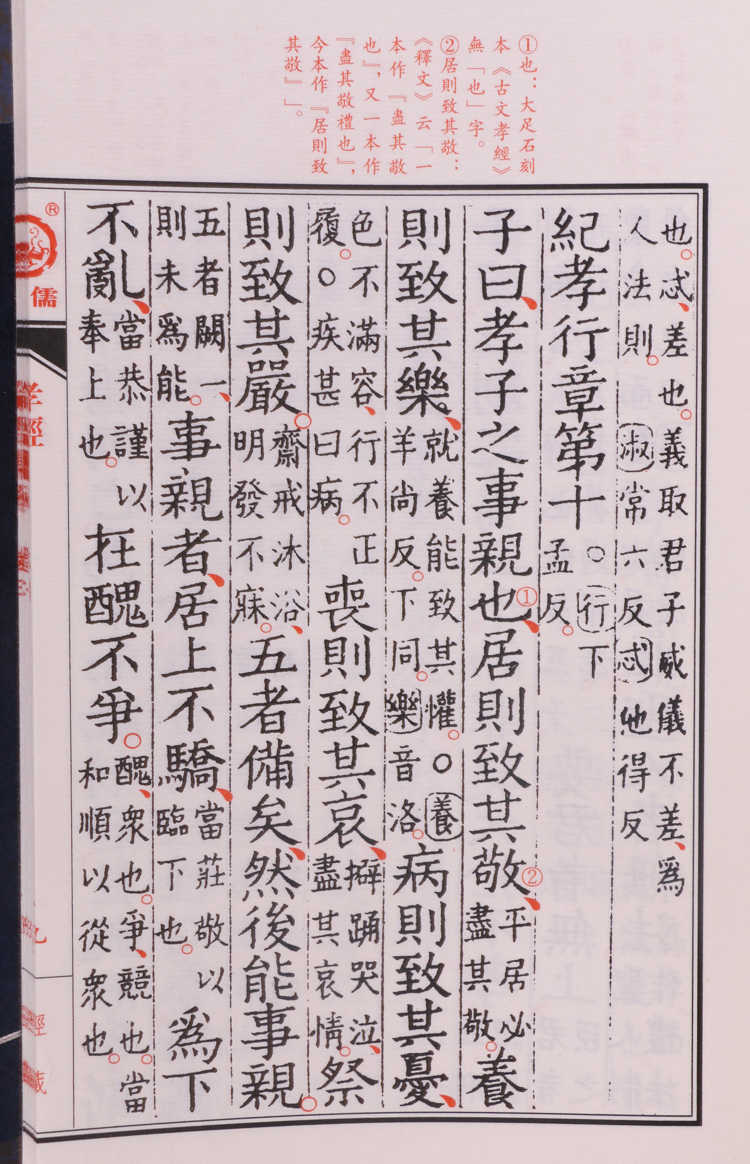 ①也：大足石刻
本《古文孝經》
無「也」字。
②居則致其敬：
《釋文》云「一
本作『盡其敬
也』，又一本作
『盡其敬禮也』，
今本作『居則致
其敬』」。
也。忒、差也。義取君子威儀不差、爲
人法則。淑常六反忒他得反
紀孝行章第十○行下孟反。
子曰、孝子之事親也①、居則致其敬②、平居必盡其敬。養
則致其樂、就養能致其懽。○養羊尚反。下同。樂音洛。病則致其憂、
色不滿容、行不正履。○疾甚曰病。喪則致其哀、擗踊哭泣、盡其哀情。祭
則致其嚴。齋戒沐浴、明發不寐。五者備矣、然後能事親。
五者闕一、則未爲能。事親者、居上不驕、當莊敬以臨下也。爲下
不亂、當恭謹以奉上也。在醜不爭。醜、衆也。爭、競也。當和順以從衆也。
®
儒
孝經